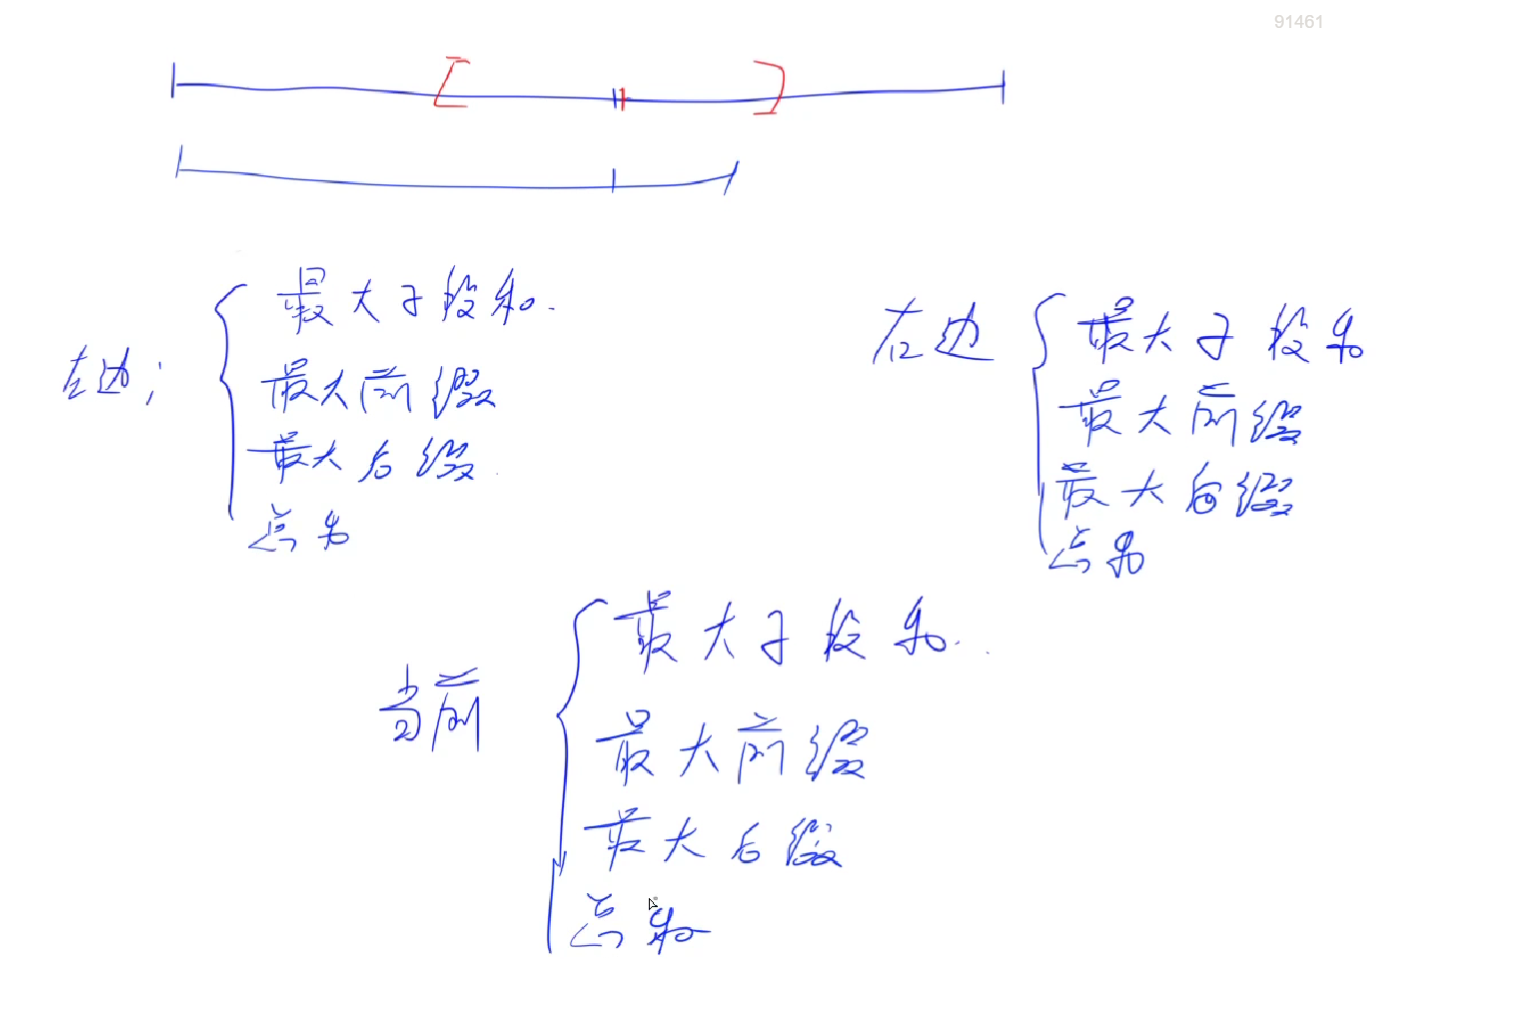 91461
左边:
最大子段和.
最大前缀
最大后缀
总和
右边
最大子段和
最大前缀
最大后缀
总和
当前
最大子段和.
最大前缀
最大后缀
总和